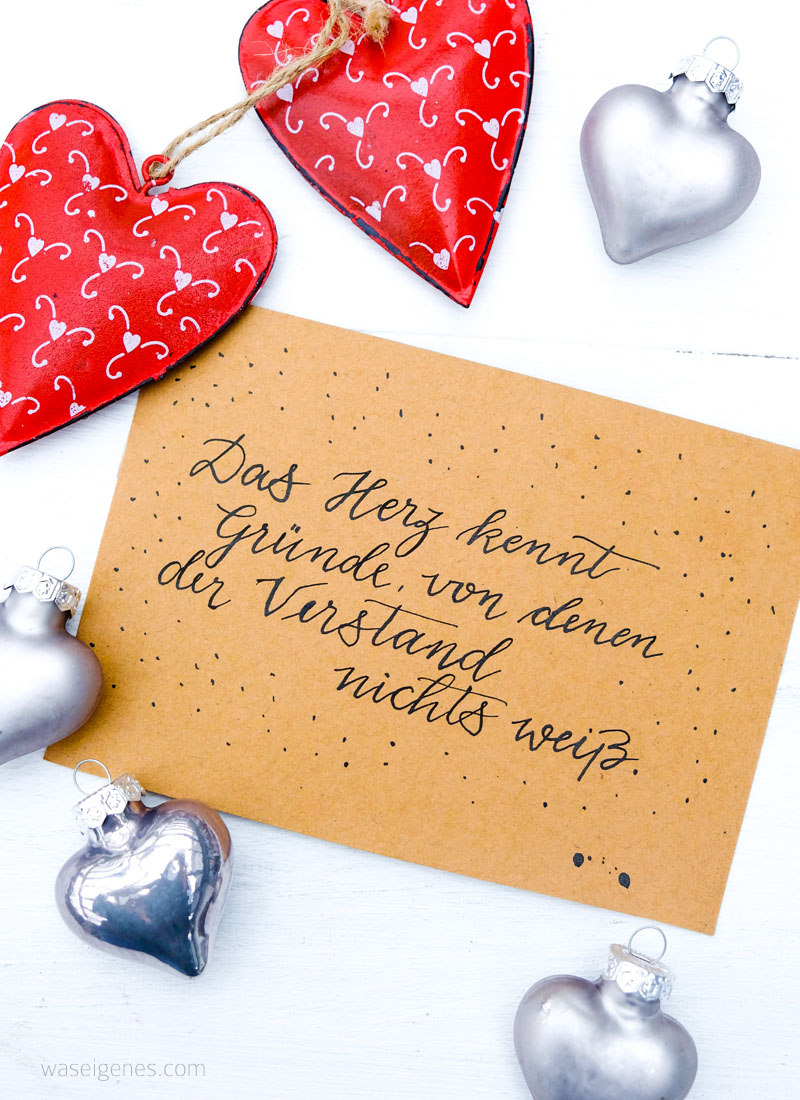 Das Herz kennt
Gründe, von denen
der Verstand
nichts weiß.
waseigenes.com